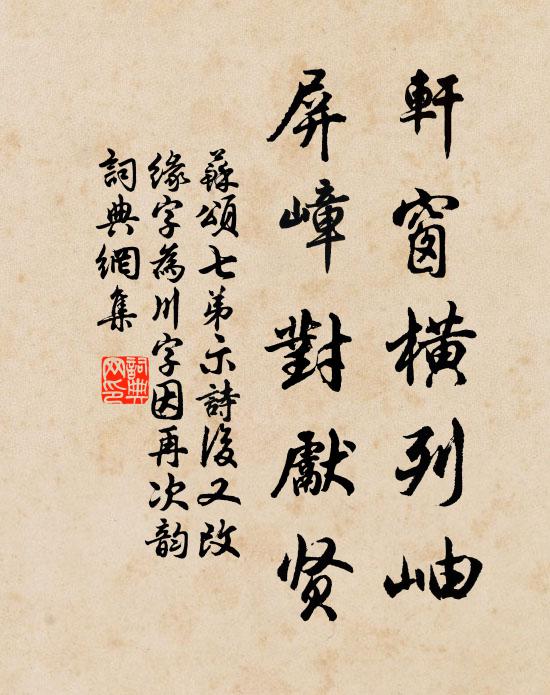 軒窗橫列岫
屏嶂對獻贤
蘇頌七弟示詩後又改
緣字為川字因再次韵
詞典網集
詞典网印